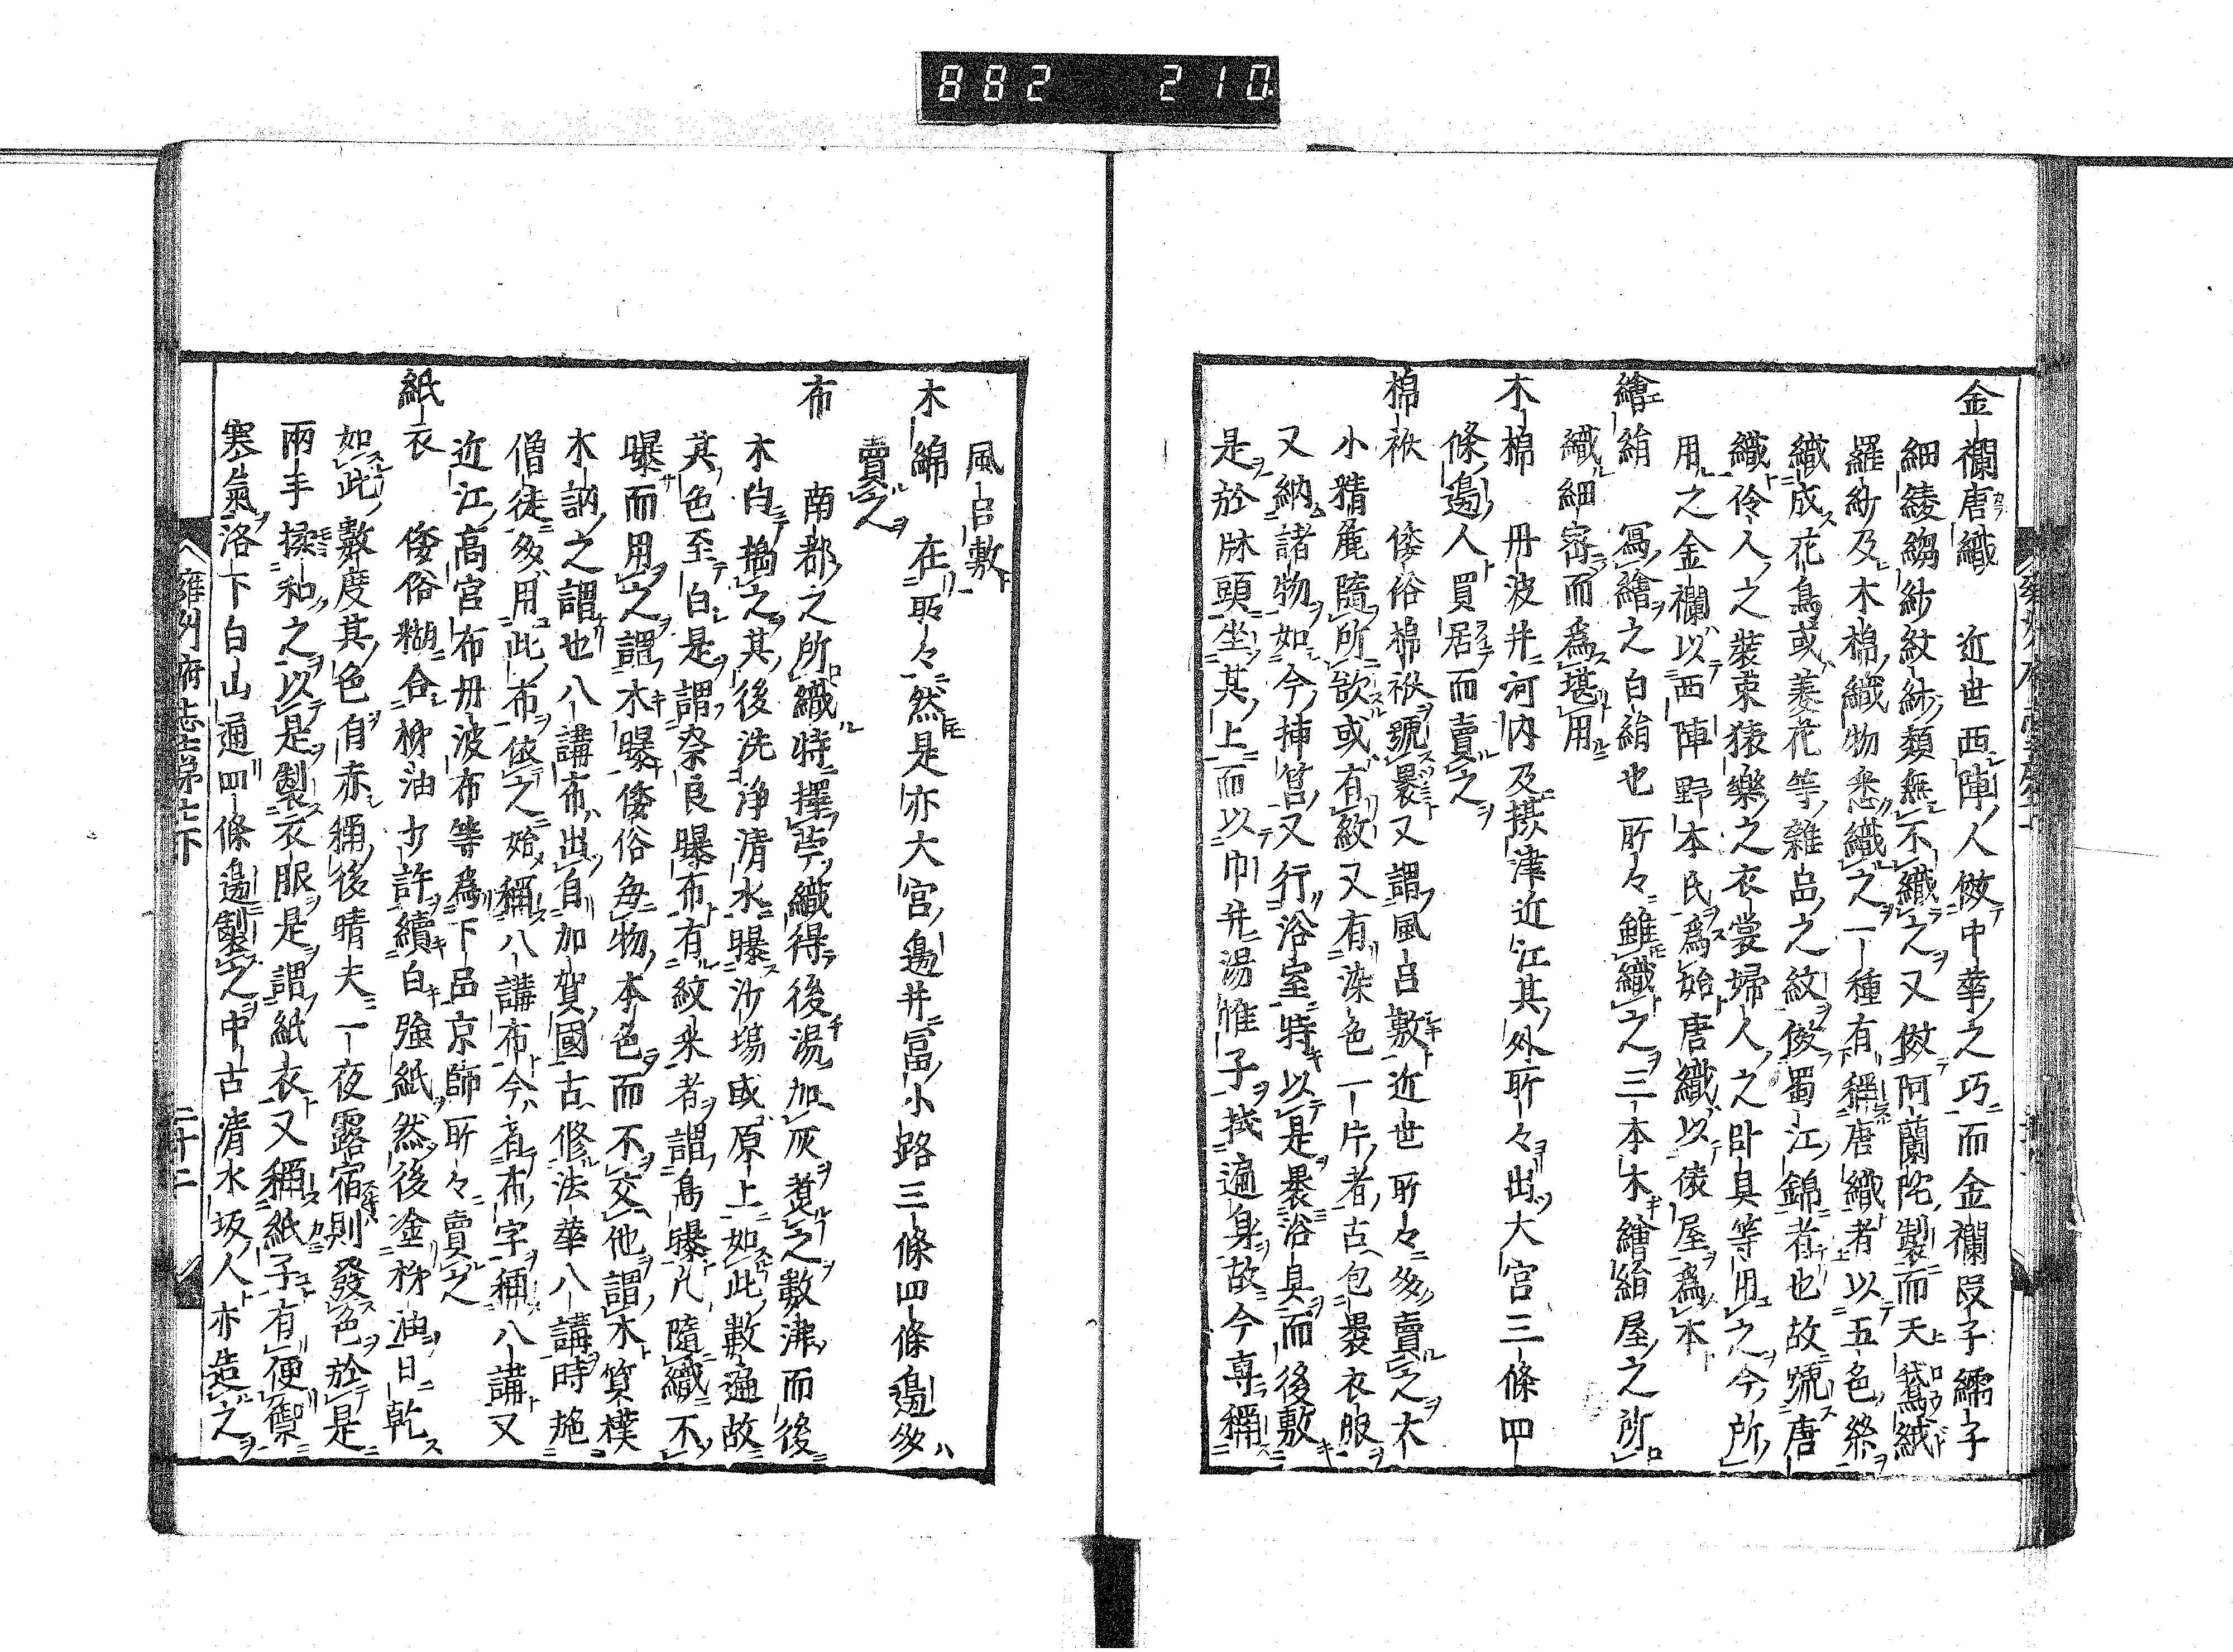 882 210
金襴唐織 近世西陣人倣中華之巧而金襴段子繻子
細綾縐紗紋紗類無不織之又倣阿蘭陀製而天鵞絨
羅紗及木棉織物悉織之一種有稱唐織者以五色絲
織成花鳥或菱花等雜品之紋倭蜀江錦者也故號唐
織伶人之裝束猿樂之衣裳婦人之臥具等用之今所
用之金襴以西陣野本氏爲始唐織以俵屋爲本
繪絹 寫繪之白絹也所々雖織之三本木繪絹屋之所
織細密而爲堪用
木棉 丹波并河内及攝津近江其外所々出大宮三條四
條邊人買居而賣之
棉袱 倭俗棉袱號褁又謂風呂敷近世所々多賣之大
小精麁隨所欲或有紋又有染色一片者古包褁衣服
又納諸物如今挿筥又行浴室時以是褁浴具而後敷
是於牀頭坐其上而以巾并湯帷子拭遍身故今專稱
風呂敷
木綿 在所々然是亦大宮邊并冨小路三條四條邊多
賣之
布 南都之所織時擇苧織得後湯加灰煑之數沸而後
木臼搗之其後洗浄清水曝沙塲或原上如此數遍故
其色至白是謂奈良曝布有紋来者謂嶌曝凡隨織不
曝而用之謂木曝倭俗毎物本色而不交他謂木質樸
木訥之謂也八講布出自加賀國古修法華八講時施
僧徒多用此布依之始稱八講布今省布字稱八講又
近江高宮布丹波布等爲下品京師所々賣之
紙衣 倭俗糊合柹油少許續白強紙然後塗柹油日乾
如此數度其色自赤稱後晴夫一夜露宿則發色於是
兩手揉和之以是製衣服是謂紙衣又稱紙子有便禦
寒氣洛下白山通四條邊製之中古清水坂人亦造之
雍州府志 下 二十二